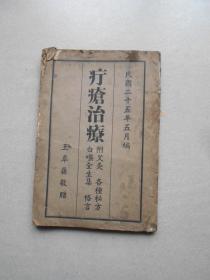 民國二十五年五月編
疔瘡治療
附艾灸 各種秘方
白喉全生集 格言
王卓羣敬贈